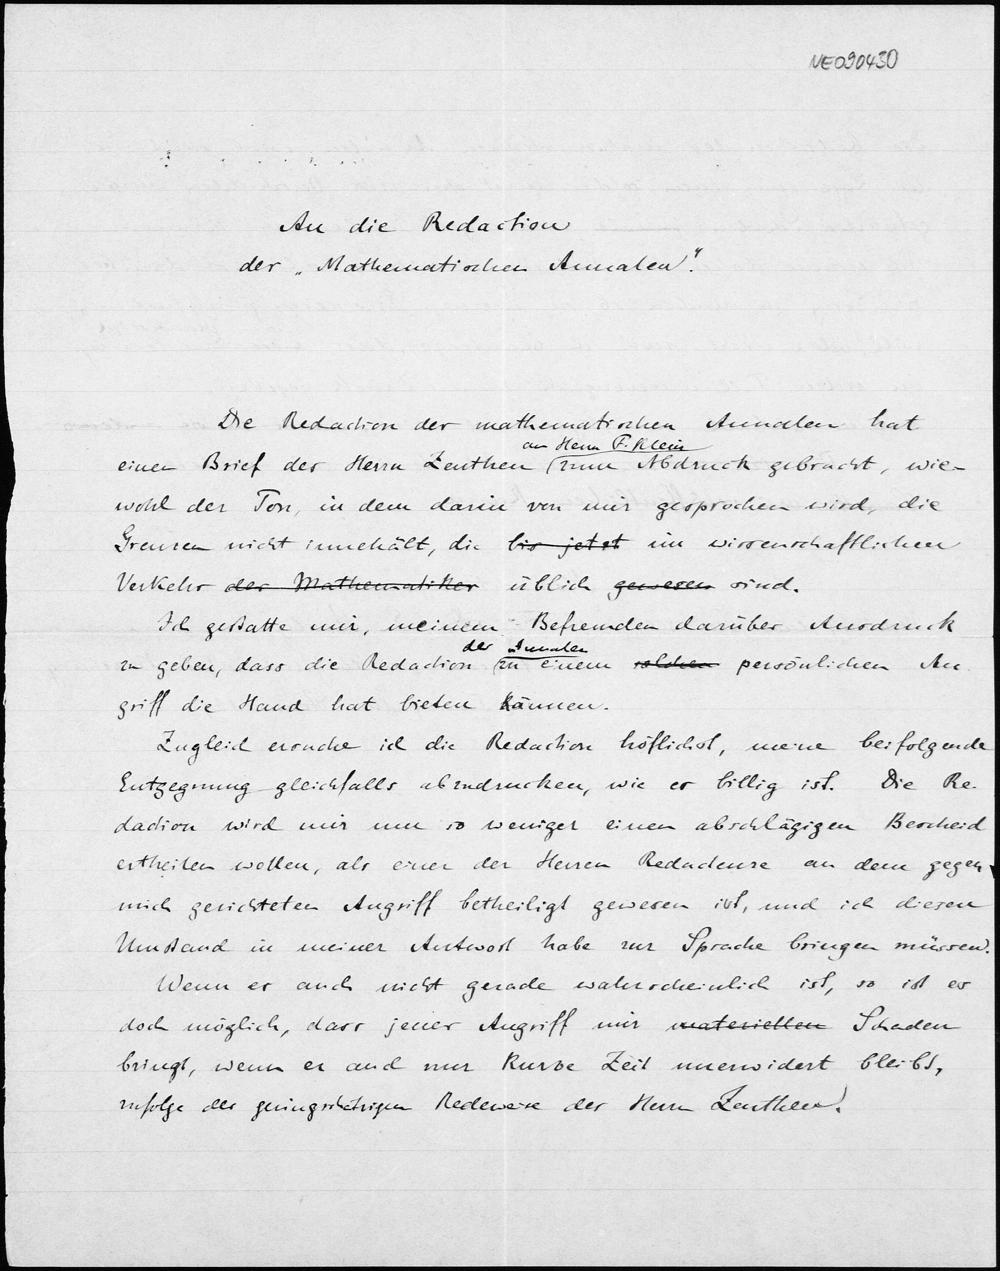 NE090430
An die Redaction
der „Mathematischen Annalen“.
Die Redaction der mathematischen Annalen hat
an Herrn F. Klein
einen Brief des Herrn Zeuthen zum Abdruck gebracht, wie-
wohl der Ton, in dem darin von mir gesprochen wird, die
Grenzen nicht innehält, die bis jetzt im wissenschaftlichen
Verkehr der Mathematiker üblich gewesen sind.
Ich gestatte mir, meinem Befremden darüber Ausdruck
der Annalen
zu geben, dass die Redaction zu einem solchen persönlichen An-
griff die Hand hat bieten können.
Zugleich ersuche ich die Redaction höflichst, meine beifolgende
Entgegnung gleichfalls abzudrucken, wie es billig ist. Die Re-
daction wird mir um so weniger einen abschlägigen Bescheid
ertheilen wollen, als einer der Herren Redacteure an dem gegen
mich gerichteten Angriff betheiligt gewesen ist, und ich diesen
Umstand in meiner Antwort habe zur Sprache bringen müssen.
Wenn es auch nicht gerade wahrscheinlich ist, so ist es
doch möglich, dass jener Angriff mir materiellen Schaden
bringt, wenn er auch nur kurze Zeit unerwidert bleibt,
zufolge der geringschätzigen Redeweise des Herrn Zeuthen.